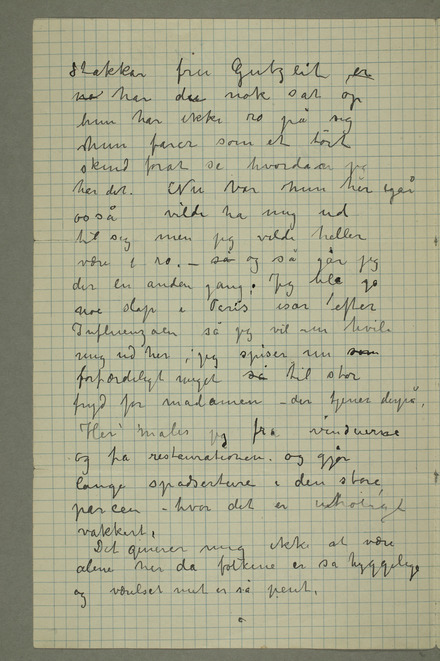 stakkar fru Gutzeit er
no har du nok sat op
hun har ikke ro på sig
hun farer som et tört
skind forat se hvordan jeg
har det. Nu var hun her igår
også vilde ha mig ud
til sig men jeg vilde heller
være i ro. – så og så går jeg
der en anden gang. Jeg ble jo
noe slap i Paris især efter
Influenzaen så jeg vil nu hvile
mig ud her, jeg spiser nu som
forfærdeligt meget så til stor
fryd for madamen – der tjener derpå.
Her males jeg fra vinduerne
og fra restaurationen. og gjør
lange spadserture i den store
parcen – hvor det er utroligt
vakkert.
Det generer mig ikke at være
alene her da folkene er så hyggelige
og værelset mit er så pent.